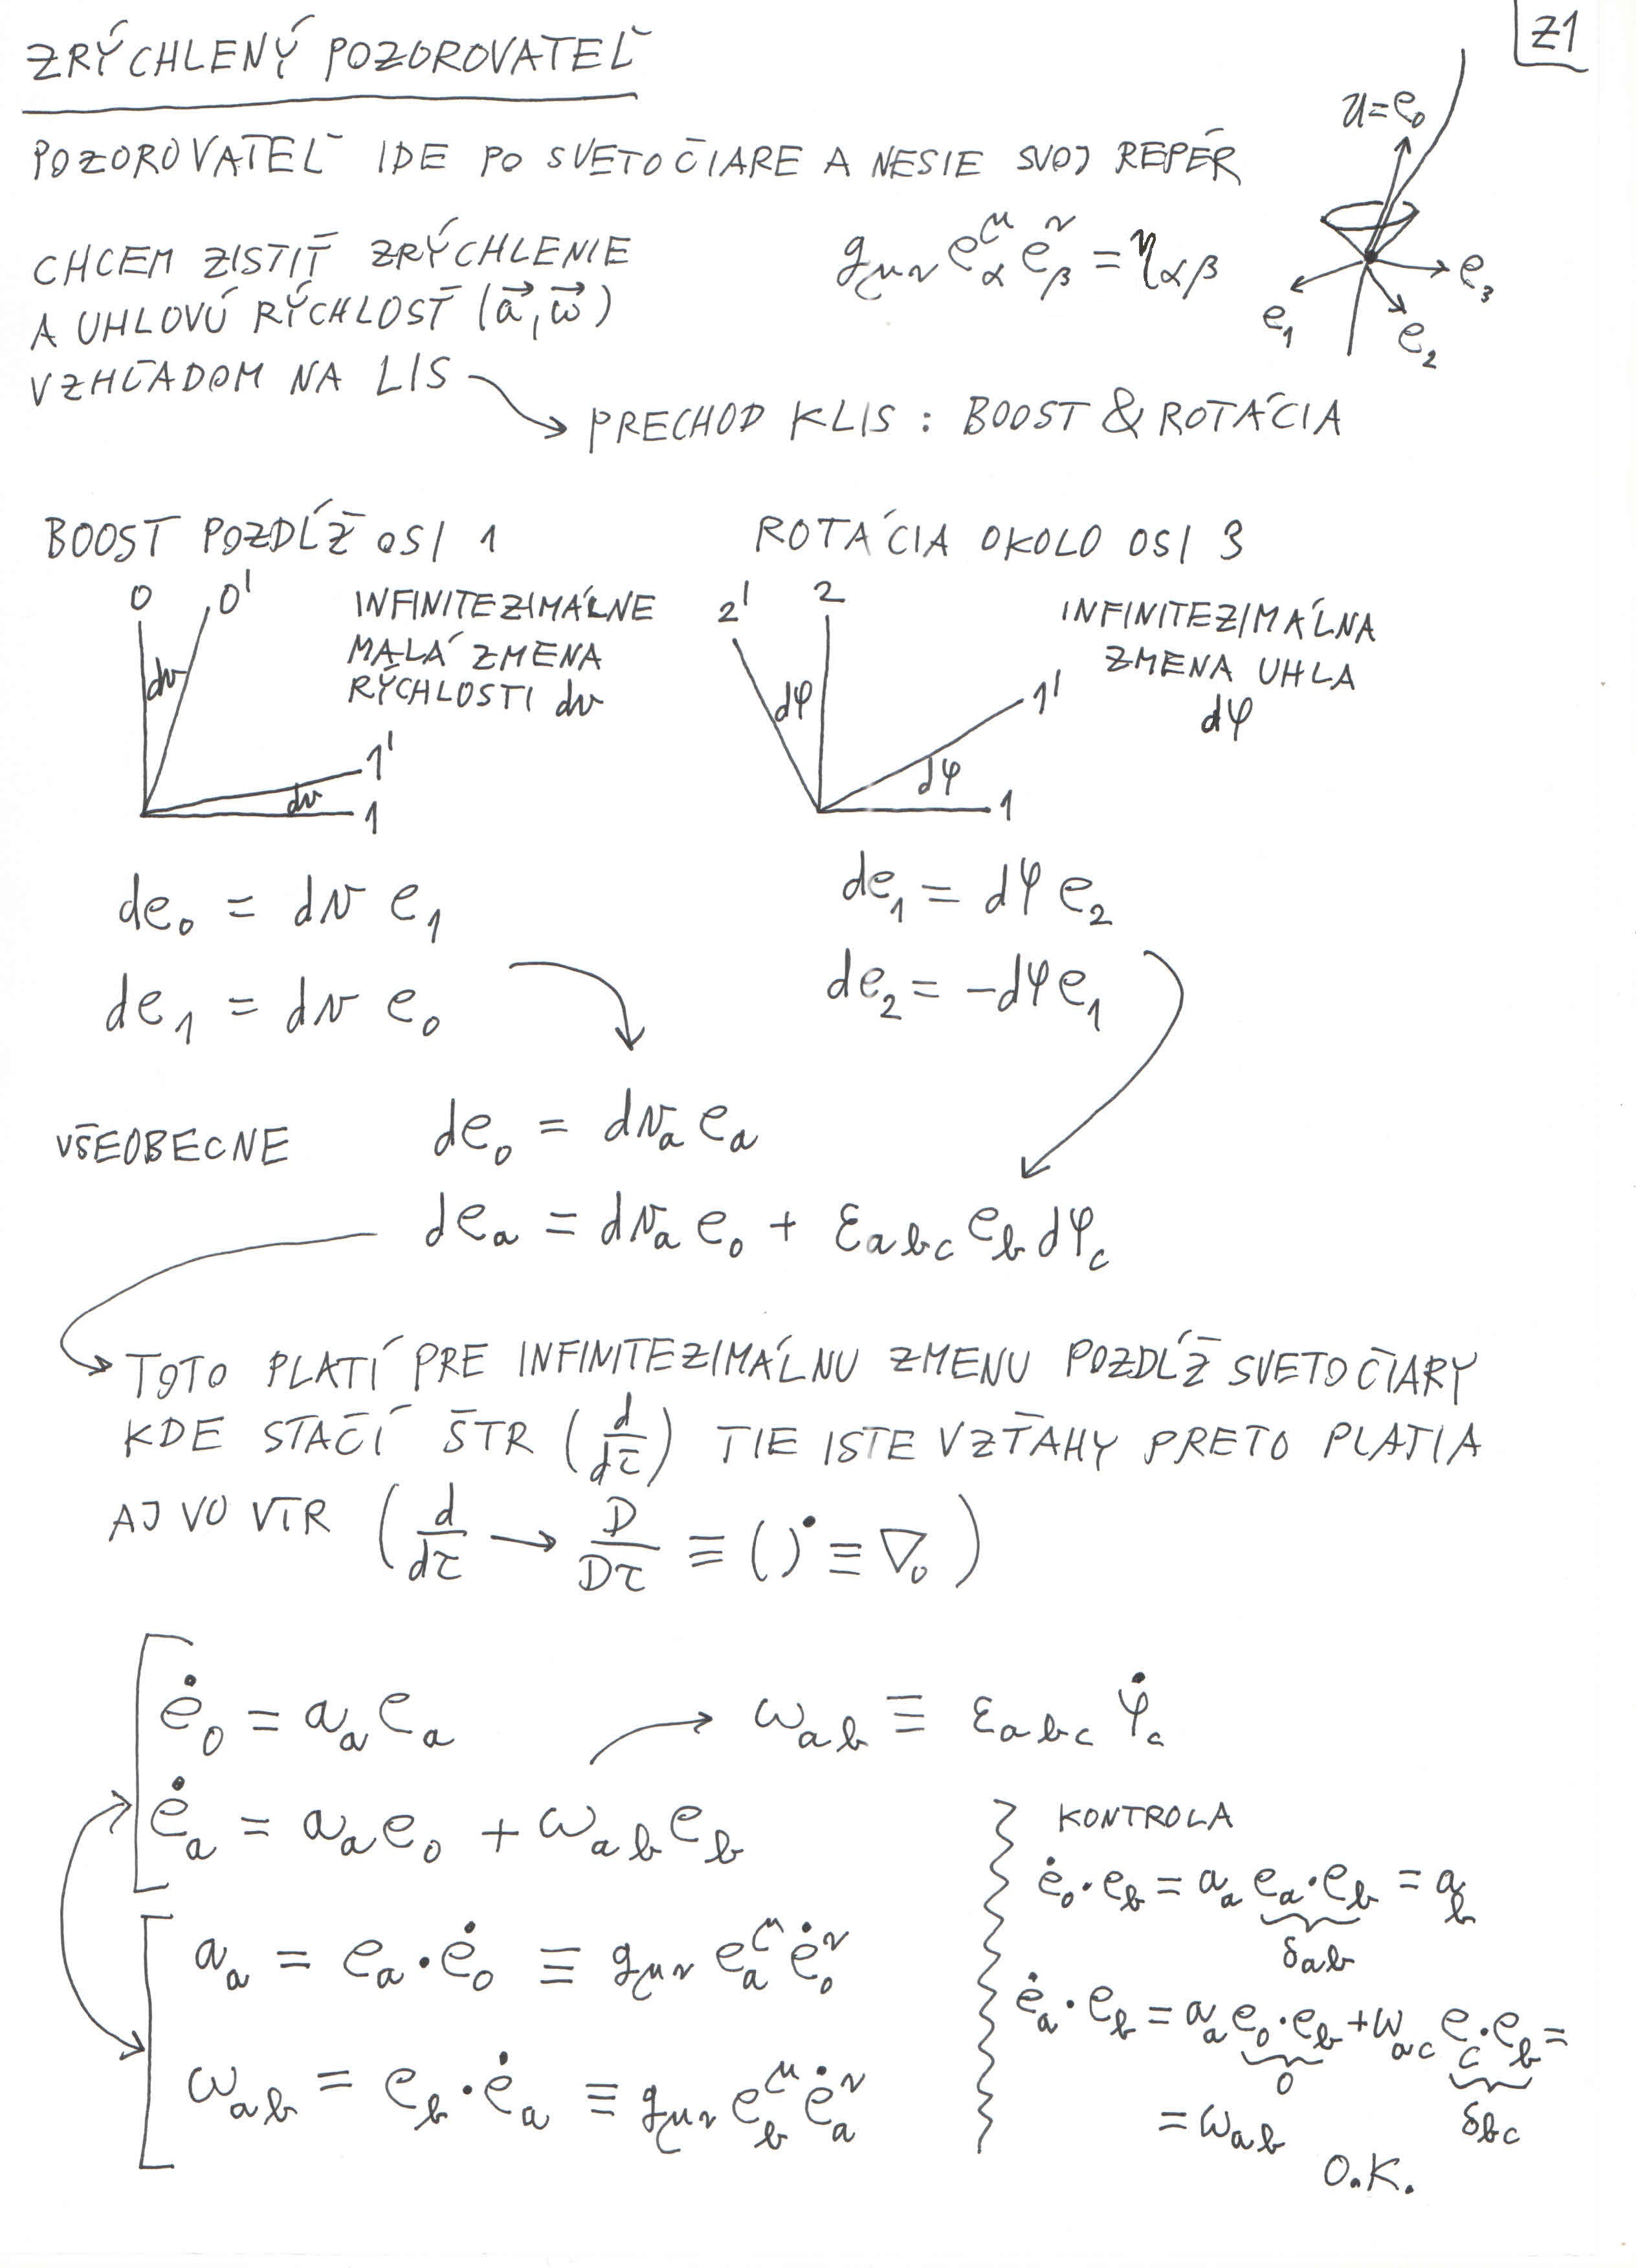 Z1
ZRÝCHLENÝ POZOROVATEĽ
POZOROVATEĽ IDE PO SVETOČIARE A NESIE SVOJ REPÉR
u=e₀
e₁
e₂
e₃
CHCEM ZISTIŤ ZRÝCHLENIE
A UHLOVÚ RÝCHLOSŤ (a⃗, ω⃗)
VZHĽADOM NA LIS
g_μν e^μ_α e^ν_β = η_αβ
PRECHOD K LIS : BOOST & ROTÁCIA
BOOST POZDĹŽ OSI 1
0 0'
dv
1'
dv
1
INFINITEZIMÁLNE
MALÁ ZMENA
RÝCHLOSTI dv
de₀ = dv e₁
de₁ = dv e₀
ROTÁCIA OKOLO OSI 3
2' 2
dφ
1'
dφ
1
INFINITEZIMÁLNA
ZMENA UHLA
dφ
de₁ = dφ e₂
de₂ = -dφ e₁
VŠEOBECNE
de₀ = dv_a e_a
de_a = dv_a e₀ + ε_abc e_b dφ_c
TOTO PLATÍ PRE INFINITEZIMÁLNU ZMENU POZDĹŽ SVETOČIARY
KDE STAČÍ ŠTR (d/dτ) TIE ISTE VZŤAHY PRETO PLATIA
AJ VO VTR (d/dτ → D/Dτ ≡ ()˙ ≡ ∇₀)
ė₀ = a_a e_a
ω_ab ≡ ε_abc φ̇_c
ė_a = a_a e₀ + ω_ab e_b
a_a = e_a · ė₀ ≡ g_μν e^μ_a ė^ν_0
ω_ab = e_b · ė_a ≡ g_μν e^μ_b ė^ν_a
KONTROLA
ė₀·e_b = a_a e_a·e_b = a_b
δ_ab
ė_a·e_b = a_a e₀·e_b + ω_ac e_c·e_b =
0
δ_bc
= ω_ab
O.K.